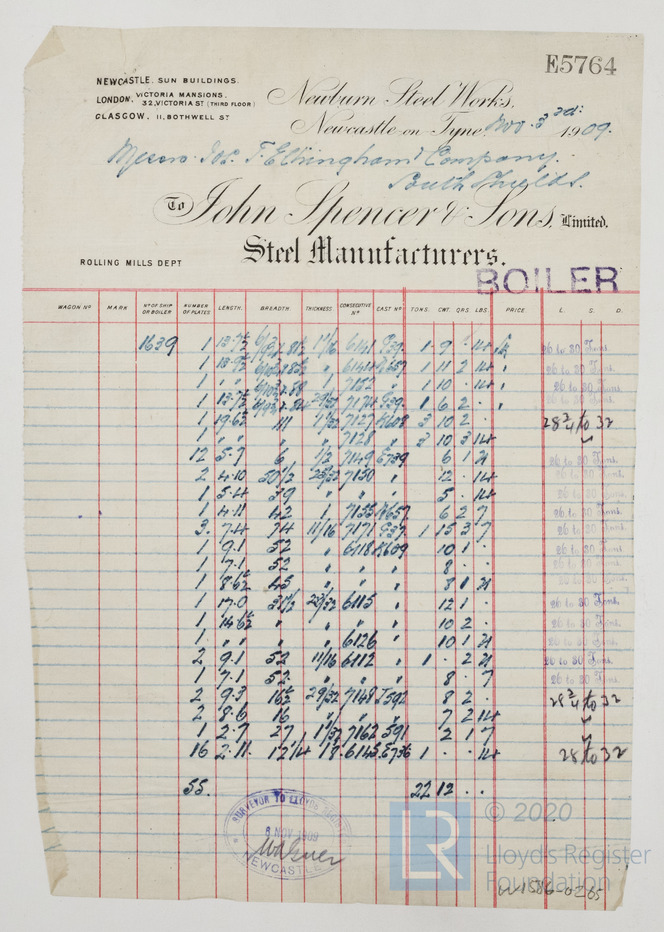 E5764
NEWCASTLE. SUN BUILDINGS.
LONDON. VICTORIA MANSIONS. 32, VICTORIA ST (THIRD FLOOR)
GLASGOW. 11, BOTHWELL ST
Newburn Steel Works,
Newcastle on Tyne Nov. 3rd: 1909.
Messrs Jos. T. Eltringham & Company.
South Shields.
To John Spencer & Sons, Limited.
Steel Manufacturers.
ROLLING MILLS DEPT
BOILER
WAGON No MARK No OF SHIP OR BOILER NUMBER OF PLATES LENGTH. BREADTH. THICKNESS. CONSECUTIVE No CAST No TONS. CWT. QRS. LBS. PRICE. L. S. D.
1639 1 11/16 6141 1 9 . 14 26 to 30 Tons.
1 1 11 2 14 26 to 30 Tons.
1 " " 7152 1 10 . 14 26 to 30 Tons.
1 29/32 7174 1 6 2 . 26 to 30 Tons.
1 19.6½ 111 7127 3 10 2 . 28¾ to 32
1 " " 7128 " 3 10 3 14 "
12 5.7 6 1/2 7149 E739 6 1 21 26 to 30 Tons.
2 4.10 30½ 7150 " 12 . 14 26 to 30 Tons.
1 5.4 39 " " " 5 . 14 26 to 30 Tons.
1 4.11 42 1 7155 6 2 7 26 to 30 Tons.
3. 7.4 74 11/16 7171 1 15 3 7 26 to 30 Tons.
1 9.1 52 " 6118 10 1 . 26 to 30 Tons.
1 7.1 52 " " " 8 . . 26 to 30 Tons.
1 8.6½ 45 " " " 8 1 21 26 to 30 Tons.
1 17.0 6115 " 12 1 . 26 to 30 Tons.
1 14.6½ " " " " 10 2 . 26 to 30 Tons.
1. " " " " 6126 " 10 1 21 26 to 30 Tons.
2 9.1 52 11/16 6112 " 1 . 2 21 26 to 30 Tons.
1 7.1 52 " " " 8 . 7 26 to 30 Tons.
2 9.3 16½ 29/32 7148 J592 8 2 . 28¾ to 32
2 8.6 16 " " " 7 2 14 "
1 2.7 27 7162 591 2 1 7 "
16 2.11 12¼ 6145 E736 1 . . 14 28 to 32
55. 22 12 . .
SURVEYOR TO LLOYD'S REGISTER
6 NOV 1909
NEWCASTLE
LR
© 2020
Lloyd's Register
Foundation
W1586-0265